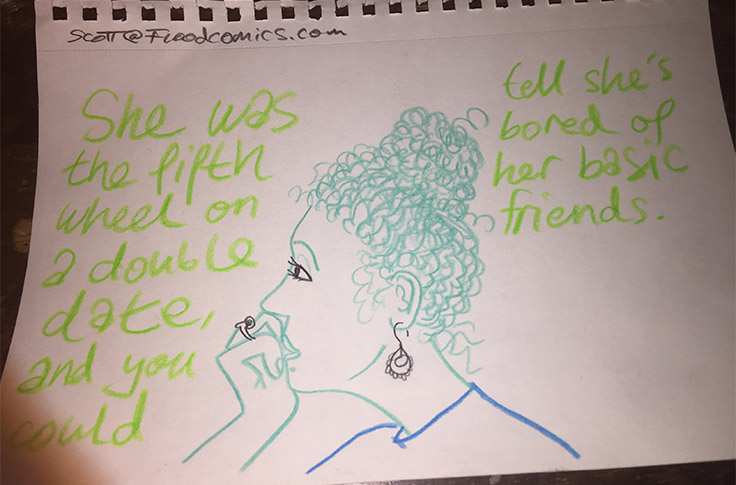 Scott@Floodcomics.com
She was
the fifth
wheel on
a double
date,
and you
could
tell she's
bored of
her basic
friends.